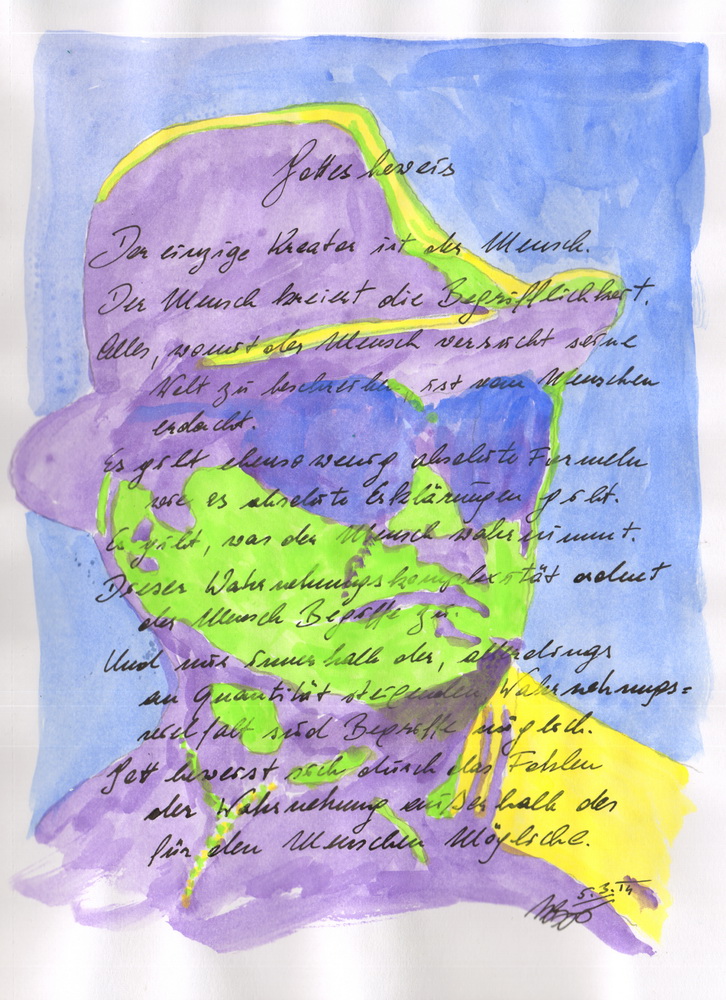 Gottesbeweis
Der einzige Kreator ist der Mensch.
Der Mensch kreiert die Begrifflichkeit.
Alles, womit der Mensch versucht seine
Welt zu beschreiben, ist vom Menschen
erdacht.
Es gibt ebenso wenig absolute Formeln
wie es absolute Erklärungen gibt.
Es gibt, was der Mensch wahrnimmt.
Dieser Wahrnehmungskomplexität ordnet
der Mensch Begriffe zu.
Und nur innerhalb der, allerdings
an Quantität steigenden Wahrnehmungs=
vielfalt sind Begriffe möglich.
Gott beweist sich durch das Fehlen
der Wahrnehmung außerhalb des
für den Menschen Mögliche.
5.3.14